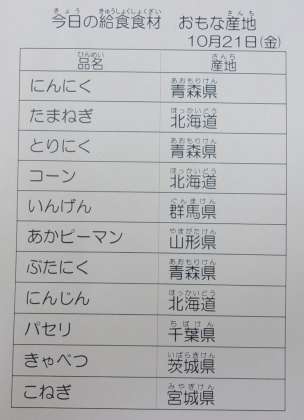 今日の給食食材 おもな産地
10月21日(金)
品名 産地
にんにく 青森県
たまねぎ 北海道
とりにく 青森県
コーン 北海道
いんげん 群馬県
あかピーマン 山形県
ぶたにく 青森県
にんじん 北海道
パセリ 千葉県
きゃべつ 茨城県
こねぎ 宮城県